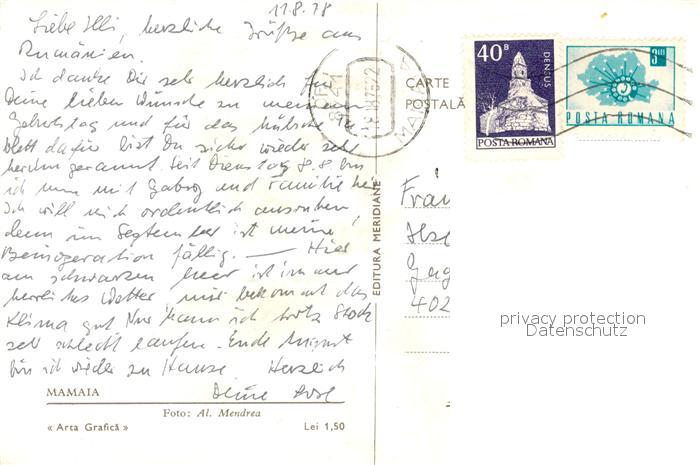 11.8.78
Liebe Illi, herzliche Grüße aus
Rumänien.
Ich danke Dir sehr herzlich für
Deine lieben Wünsche zu meinem
Geburtstag und für das hübsche
Blatt dafür bist Du sicher wieder sehr
herumgerannt. Seit Dienstag 8.8. bin
ich nun mit Gabog und Familie hier
Ich will mich ordentlich ausruhen,
denn im September ist meine
Beinoperation fällig. — Hier
am schwarzen Meer ist immer
herrliches Wetter, mir bekommt das
Klima gut. Nur kann ich trotz Stock
sehr schlecht laufen. Ende August
bin ich wieder zu Hause. Herzlich
Deine
MAMAIA
Foto: Al. Mendrea
« Arta Grafică »
Lei 1,50
EDITURA MERIDIANE
CARTE
POSTALĂ
40 B
DENSUS
POSTA ROMANA
POSTA ROMANA
Frau
Ilse
402
privacy protection
Datenschutz